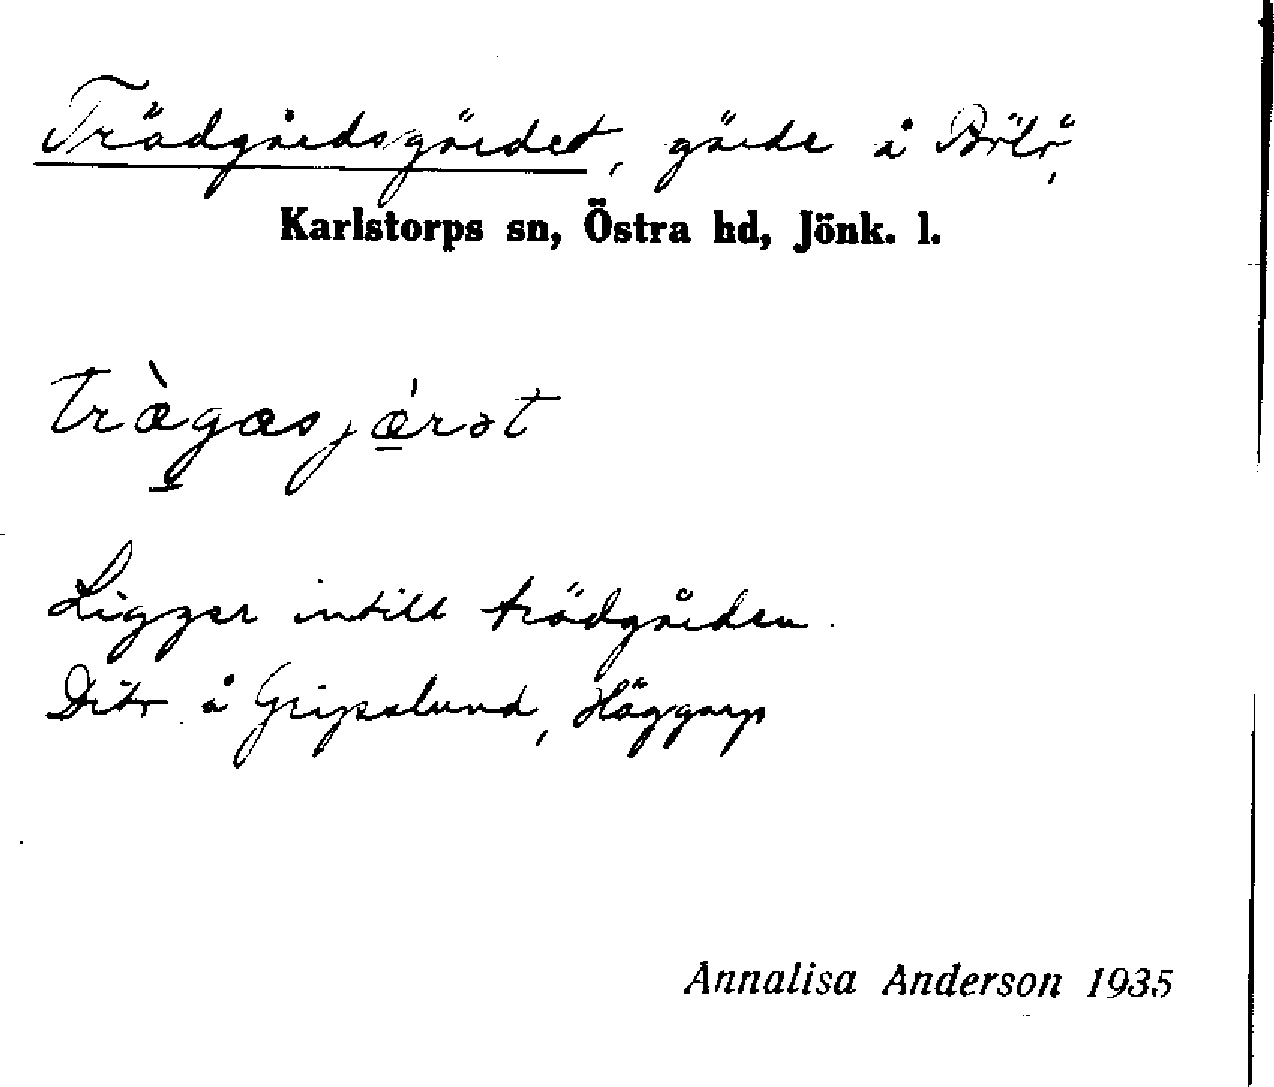 Trädgårdsgärdet, gärde å Bölö,
Karlstorps sn, Östra hd, Jönk. l.
træ̀gasjǽ̲rət
Ligger intill trädgården.
Ditr å Gripslund, Häggarp
Annalisa Anderson 1935